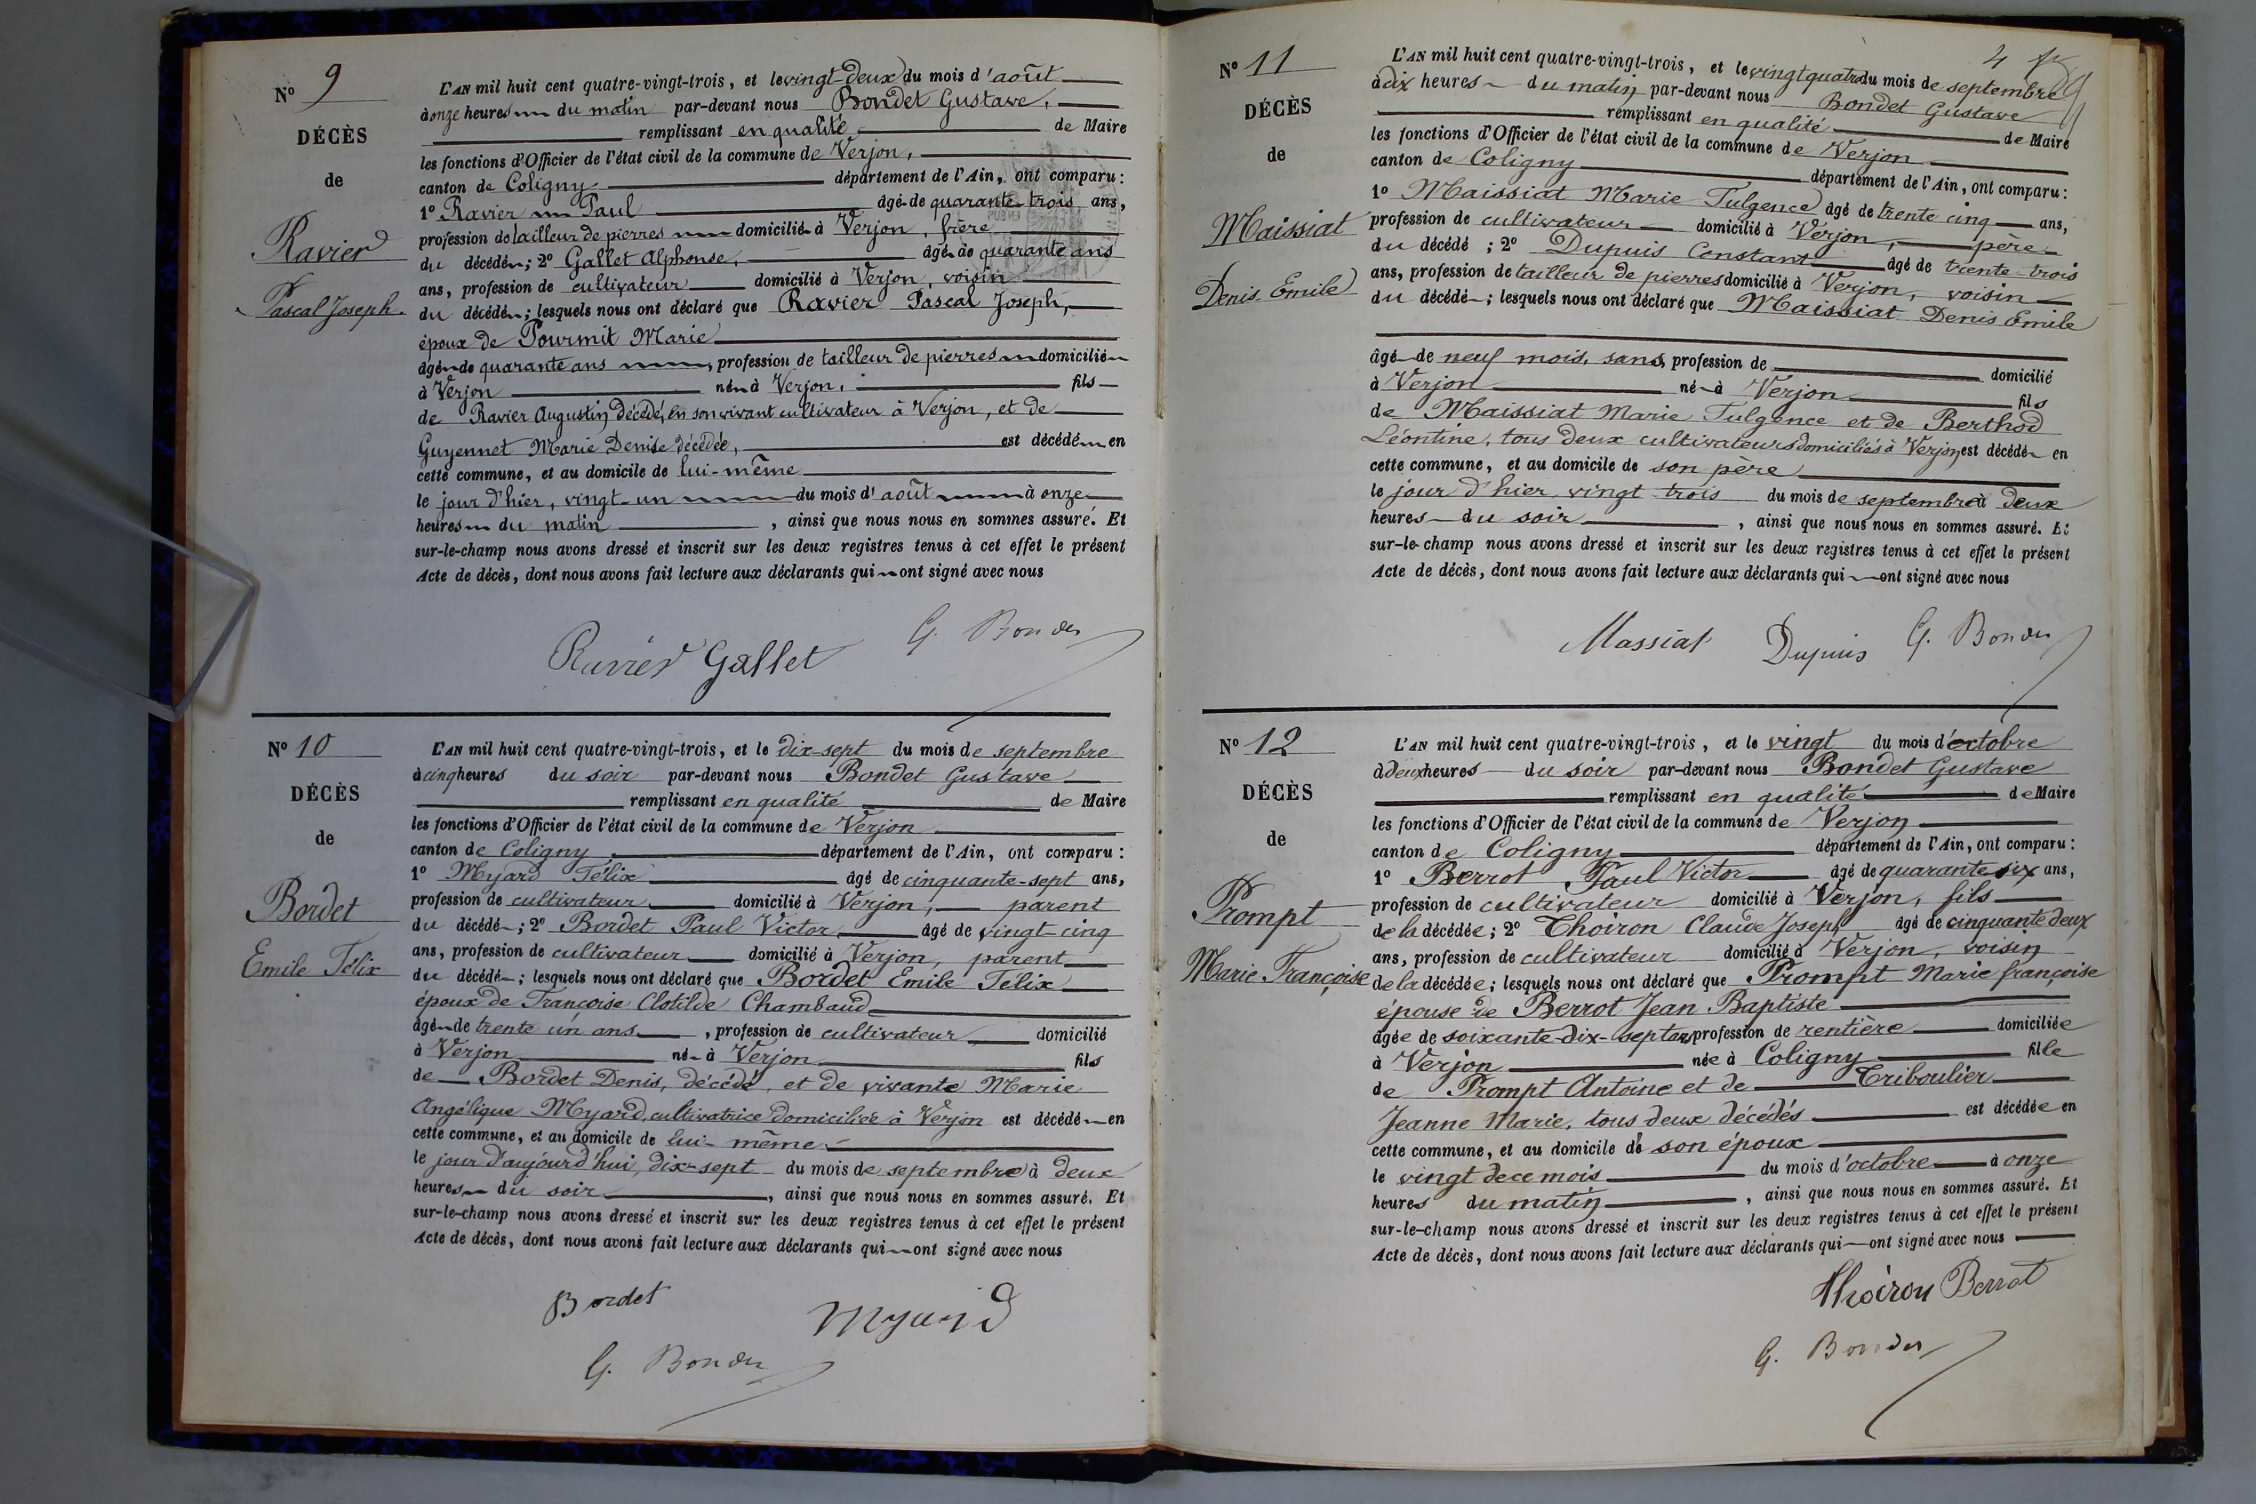 Nº 9
DÉCÈS
de
Ravier
Pascal Joseph.
L'AN mil huit cent quatre-vingt-trois, et le vingt-deux du mois d'août
à onze heures du matin par-devant nous Bondet Gustave,
remplissant en qualité de Maire
les fonctions d'Officier de l'état civil de la commune de Verjon,
canton de Coligny département de l'Ain, ont comparu :
1º Ravier Paul âgé de quarante-trois ans,
profession de tailleur de pierres domicilié à Verjon, frère
du décédé ; 2º Gallet Alphonse, âgé de quarante ans
ans, profession de cultivateur domicilié à Verjon, voisin
du décédé ; lesquels nous ont déclaré que Ravier Pascal Joseph,
époux de Pourmit Marie
âgé de quarante ans, profession de tailleur de pierres domicilié
à Verjon né à Verjon, fils
de Ravier Augustin décédé, en son vivant cultivateur à Verjon, et de
Guyennet Marie Denise décédée, est décédé en
cette commune, et au domicile de lui-même
le jour d'hier, vingt-un du mois d'août à onze
heures du matin, ainsi que nous nous en sommes assuré. Et
sur-le-champ nous avons dressé et inscrit sur les deux registres tenus à cet effet le présent
Acte de décès, dont nous avons fait lecture aux déclarants qui ont signé avec nous
Ravier Gallet G. Bondet
Nº 10
DÉCÈS
de
Bordet
Emile Félix
L'AN mil huit cent quatre-vingt-trois, et le dix-sept du mois de septembre
à cinq heures du soir par-devant nous Bondet Gustave
remplissant en qualité de Maire
les fonctions d'Officier de l'état civil de la commune de Verjon
canton de Coligny département de l'Ain, ont comparu :
1º Myard Félix âgé de cinquante-sept ans,
profession de cultivateur domicilié à Verjon, parent
du décédé ; 2º Bordet Paul Victor âgé de vingt-cinq
ans, profession de cultivateur domicilié à Verjon, parent
du décédé ; lesquels nous ont déclaré que Bordet Emile Félix
époux de Françoise Clotilde Chambaud
âgé de trente un ans, profession de cultivateur domicilié
à Verjon né à Verjon fils
de Bordet Denis, décédé, et de vivante Marie
Angélique Myard, cultivatrice domiciliée à Verjon est décédé en
cette commune, et au domicile de lui-même
le jour d'aujourd'hui, dix-sept du mois de septembre à deux
heures du soir, ainsi que nous nous en sommes assuré. Et
sur-le-champ nous avons dressé et inscrit sur les deux registres tenus à cet effet le présent
Acte de décès, dont nous avons fait lecture aux déclarants qui ont signé avec nous
Bordet Myard
G. Bondet
4
Nº 11
DÉCÈS
de
Maissiat
Denis Emile
L'AN mil huit cent quatre-vingt-trois, et le vingt quatre du mois de septembre
à dix heures du matin par-devant nous Bondet Gustave
remplissant en qualité de Maire
les fonctions d'Officier de l'état civil de la commune de Verjon
canton de Coligny département de l'Ain, ont comparu :
1º Maissiat Marie Fulgence âgé de trente cinq ans,
profession de cultivateur domicilié à Verjon, père
du décédé ; 2º Dupuis Constant âgé de trente-trois
ans, profession de tailleur de pierres domicilié à Verjon, voisin
du décédé ; lesquels nous ont déclaré que Maissiat Denis Emile
âgé de neuf mois, sans profession de domicilié
à Verjon né à Verjon fils
de Maissiat Marie Fulgence et de Berthod
Léontine, tous deux cultivateurs domiciliés à Verjon est décédé en
cette commune, et au domicile de son père
le jour d'hier vingt trois du mois de septembre à deux
heures du soir, ainsi que nous nous en sommes assuré. Et
sur-le-champ nous avons dressé et inscrit sur les deux registres tenus à cet effet le présent
Acte de décès, dont nous avons fait lecture aux déclarants qui ont signé avec nous
Massiat Dupuis G. Bondet
Nº 12
DÉCÈS
de
Prompt
Marie Françoise
L'AN mil huit cent quatre-vingt-trois, et le vingt du mois d'octobre
à deux heures du soir par-devant nous Bondet Gustave
remplissant en qualité de Maire
les fonctions d'Officier de l'état civil de la commune de Verjon
canton de Coligny département de l'Ain, ont comparu :
1º Berrot Paul Victor âgé de quarante six ans,
profession de cultivateur domicilié à Verjon, fils
de la décédée ; 2º Thoiron Claude Joseph âgé de cinquante deux
ans, profession de cultivateur domicilié à Verjon, voisin
de la décédée ; lesquels nous ont déclaré que Prompt Marie françoise
épouse de Berrot Jean Baptiste
âgée de soixante-dix-sept ans profession de rentière domiciliée
à Verjon née à Coligny fille
de Prompt Antoine et de Triboulier
Jeanne Marie, tous deux décédés est décédée en
cette commune, et au domicile de son époux
le vingt de ce mois du mois d'octobre à onze
heures du matin, ainsi que nous nous en sommes assuré. Et
sur-le-champ nous avons dressé et inscrit sur les deux registres tenus à cet effet le présent
Acte de décès, dont nous avons fait lecture aux déclarants qui ont signé avec nous
Thoiron Berrot
G. Bondet